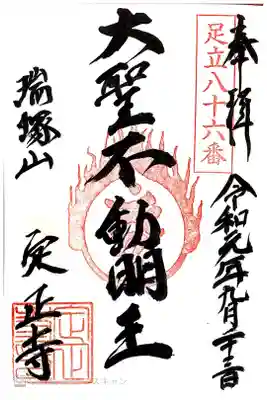 奉拝
足立八十六番
令和元年九月二十三日
大聖不動明王
瑞塚山
定正寺